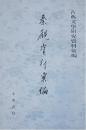 古典文学研究资料汇编
秦观资料汇编
中华书局